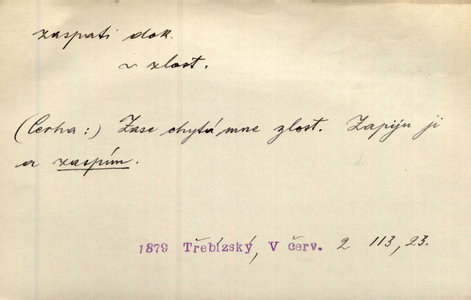 zaspati dok.
~ zlost.
(Cerha:) Zase chytá mne zlost. Zapiju ji
a zaspím.
1879 Třebízský, V červ. 2 113, 23.